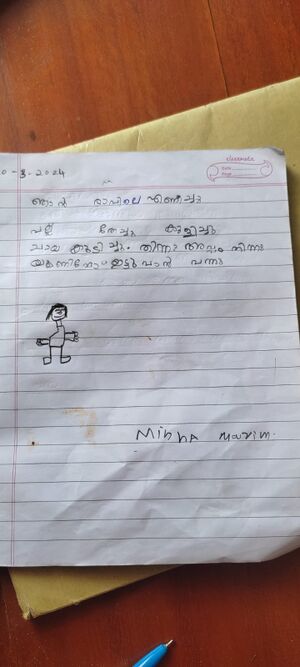 classmate
Date
Page
0-3-2024
ഞാൻ രാവിലെ എണീച്ചു
പല്ല് തേച്ചു കുളിച്ചു
ചായ കുടിച്ചു. തിന്നു അപ്പം തിന്നു
യൂണിഫോം ഇട്ടു വാൻ വന്നു
Minha Marim.